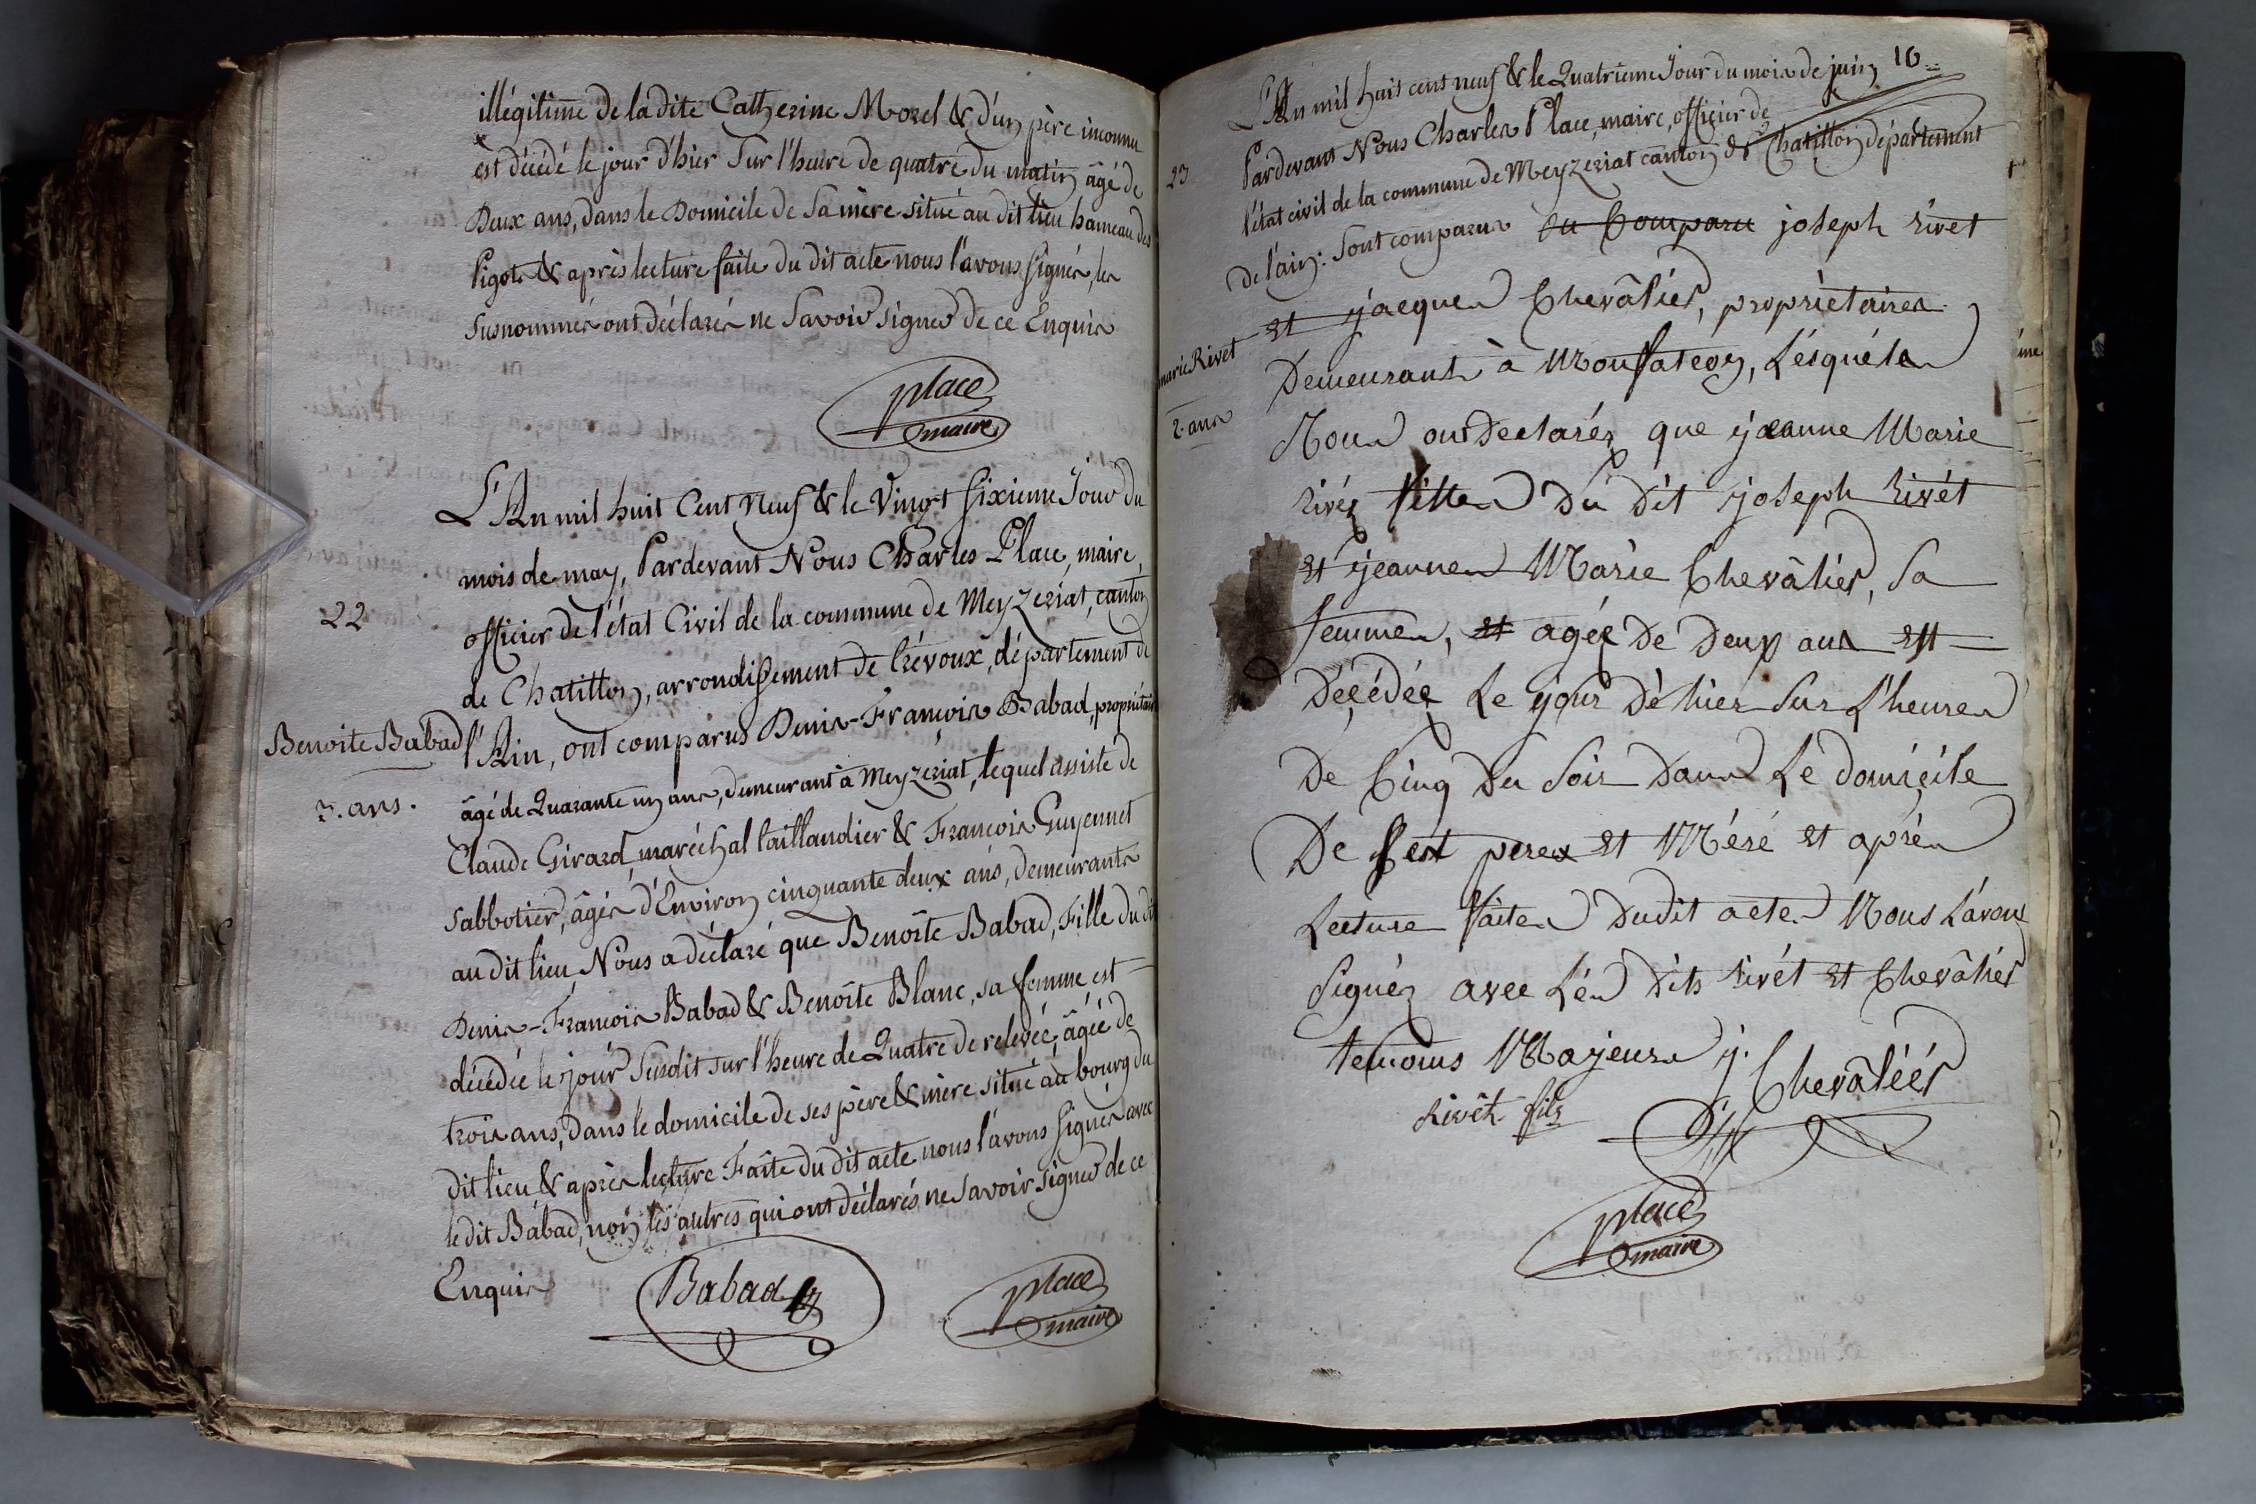 illégitime de la dite Catherine Morel & d'un père inconnu
est décédé le jour d'hier sur l'heure de quatre du matin âgé de
Deux ans, dans le Domicile de sa mère situé au dit lieu hameau des
Pigots & après lecture faite du dit acte nous l'avons signés, les
susnommés ont déclarés ne savoir signer de ce Enquis
place
maire
L'An mil huit Cent neuf & le Vingt sixieme Jour du
mois de may, Pardevant Nous Charles Place, maire,
22
officier de l'état Civil de la commune de Meyzeriat, canton
de Chatillon, arrondissement de Trévoux, département de
Benoite Babad
l'Ain, ont comparus Denis-François Babad, propriétaire
3. ans.
âgé de Quarante un ans, demeurant à Meyzeriat, lequel assisté de
Claude Girard, maréchal taillandier & François Guyennet
sabbotier, âgés d'Environ cinquante deux ans, demeurants
au dit lieu, Nous a déclaré que Benoîte Babad, Fille du dit
Denis-François Babad & Benoîte Blanc, sa femme est
décédée le jour susdit sur l'heure de Quatre de relevée, âgée de
trois ans, dans le domicile de ses père & mère situé au bourg du
dit lieu & après lecture Faite du dit acte nous l'avons signés avec
le dit Babad, non les autres qui ont déclarés ne savoir signer de ce
Enquis
Babad
place
maire
10
L'An mil huit cent neuf & le Quatrieme Jour du mois de juin
23
Pardevant Nous Charles Place, maire, officier de
l'état civil de la commune de Meyzériat canton de Chatillon département
de l'ain: sont comparus ou Comparu joseph rivet
et jacques Chevâlier, propriétaires
marie Rivet
2. ans
Demeurants à Monfalcon, Lésquéles
Nous ont Declarés que jeanne Marie
rivés filles Dû Dit joseph rivét
et jeannes Marie Chevâlier, sa
femmes, et agée De Deux ans est
Décédée Le jour D'hier sur L'heures
De Cinq Du soir Dans Le domicile
De ses peres et Mére et aprés
Lecture faites Dudit actes Nous L'avons
signés avec Lés Dits rivét et Chevâlier
temoins Majeurs j. Chevâléér
rivét fils
place
maire